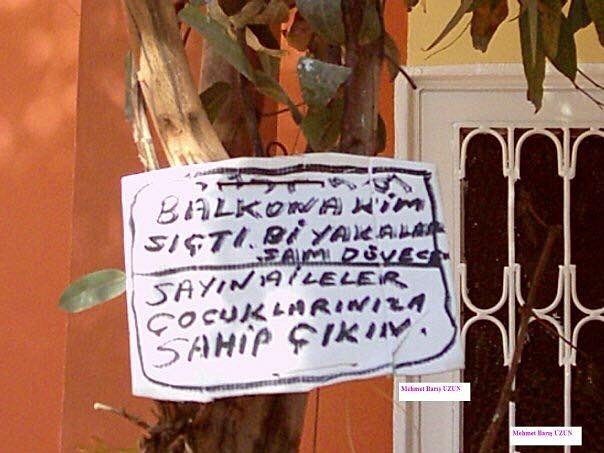 BALKONA KİM
SIÇTI. Bİ YAKALAR
SAM DÖVECEM
SAYIN AİLELER
ÇOCUKLARINIZA
SAHİP ÇIKIN.
Mehmet Barış UZUN
Mehmet Barış UZUN